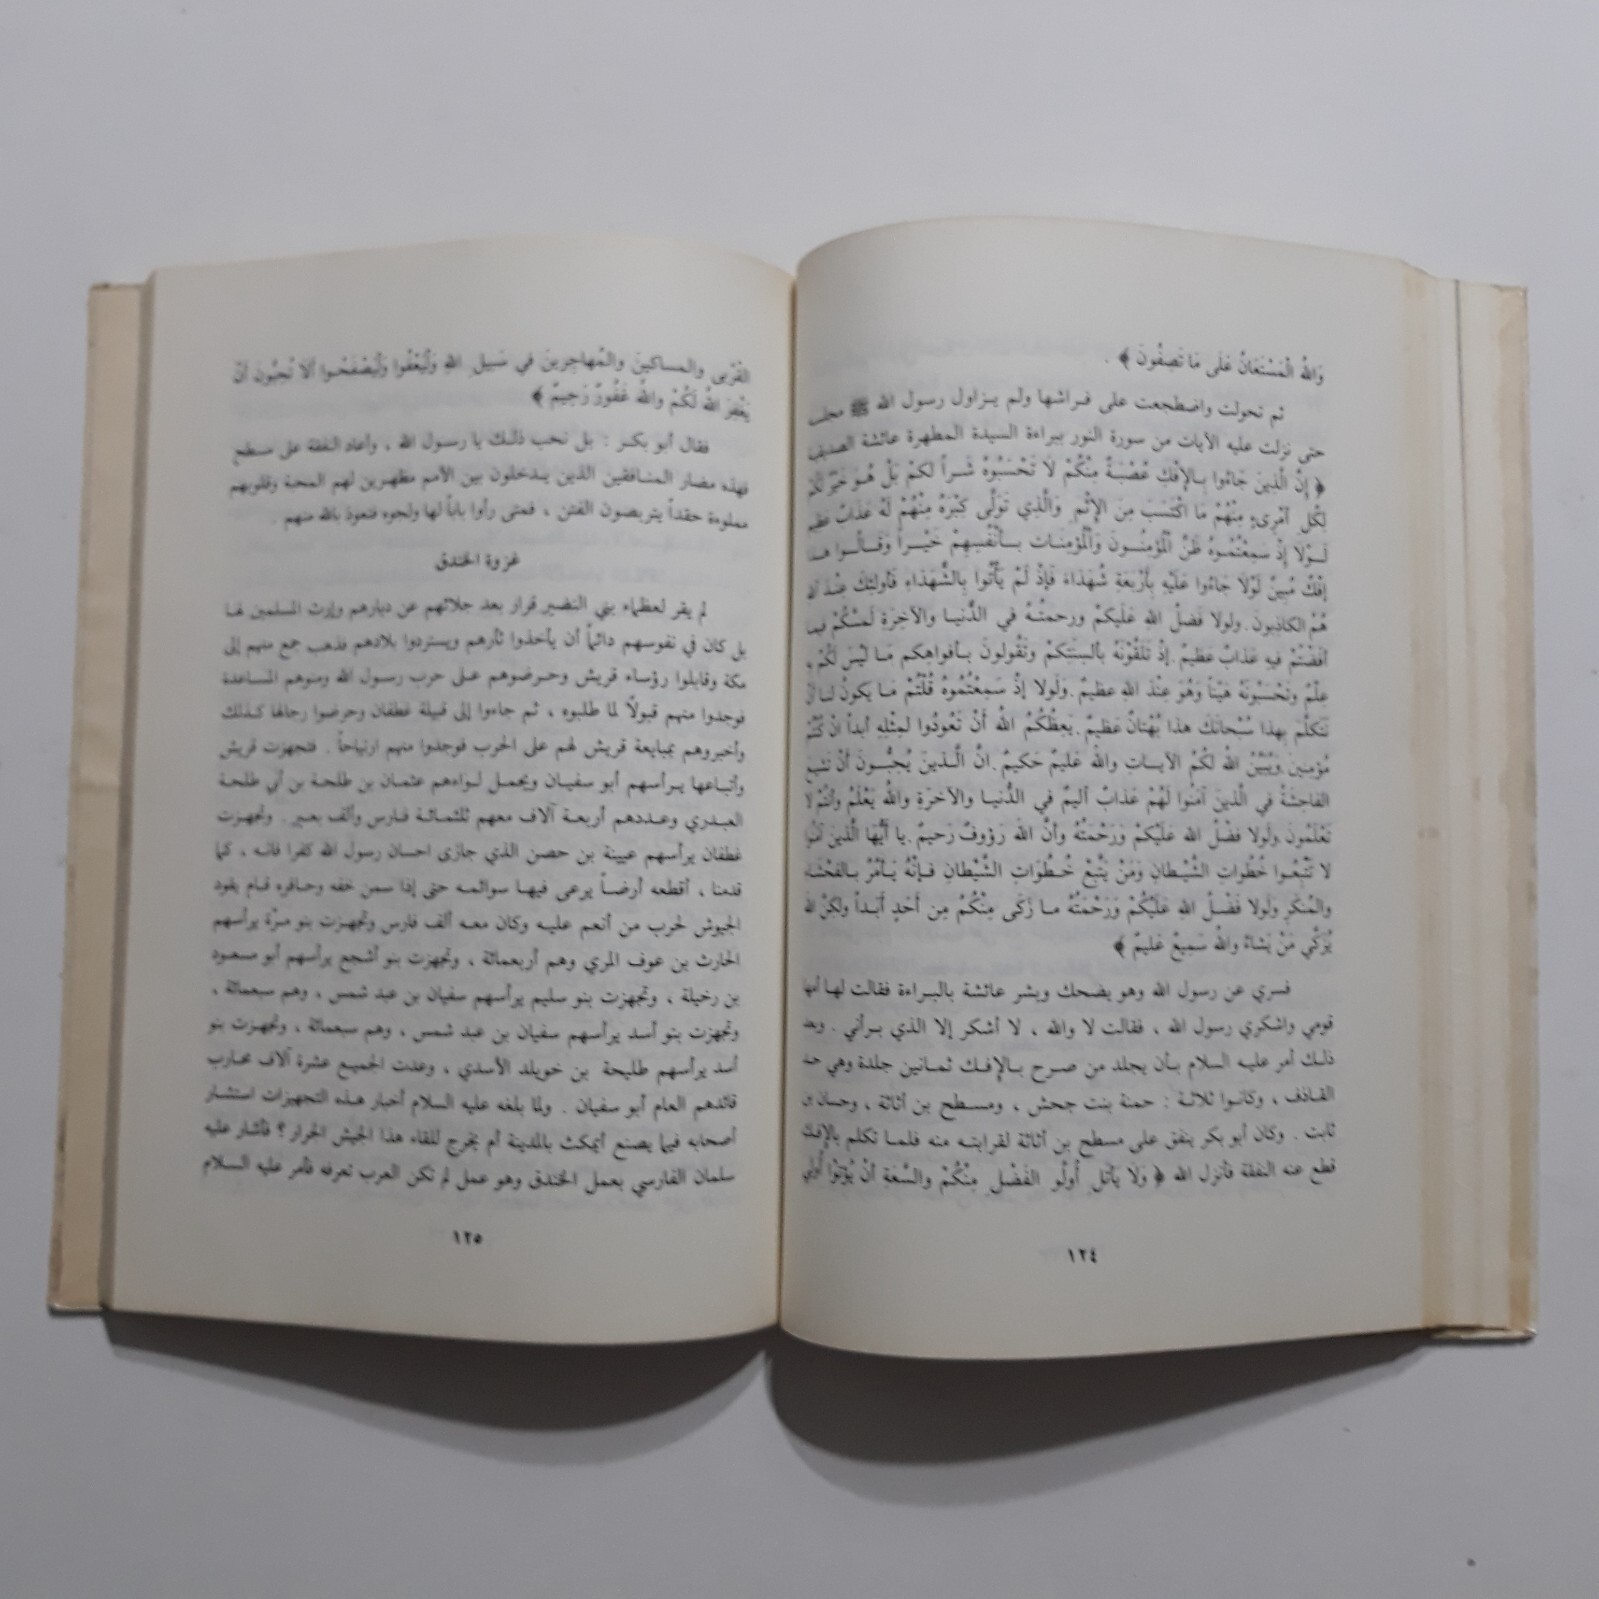 وَاللهُ الْمَسْتَعَانُ عَلَى مَا تَصِفُونَ ﴾ .
ثم تحولت واضطجعت على فراشها ولم يزاول رسول الله ﷺ مجلسه
حتى نزلت عليه الآيات من سورة النور ببراءة السيدة المطهرة عائشة الصديقة
﴿ إنَّ الَّذينَ جَاءُوا بِالإفكِ عُصْبَةٌ مِنْكُمْ لَا تَحْسَبُوهُ شَراً لَكمْ بَلْ هُوَ خَيْرٌ لَكُمْ
لِكُلِّ آمْرِىءٍ مِنْهُمْ مَا اكْتَسَبَ مِنَ الإثْمِ وَالَّذِي تَوَلَّى كِبْرَهُ مِنْهُمْ لَهُ عَذَابٌ عظيمٌ
لَوْلا إذْ سَمِعْتُمُوهُ ظَنَّ الْمُؤمِنُونَ وَالْمُؤمِنَات بأنْفُسِهِمْ خَيْراً وَقَالُوا هذا
إفْكٌ مُبِينٌ لَوْلَا جَاءُوا عَلَيْهِ بِأَرْبَعَةِ شُهَدَاءَ فَإذْ لَمْ يَأْتُوا بِالشُّهَدَاءِ فَأولئِكَ عِنْدَ اللهِ
هُمُ الكاذِبونَ.ولولا فَضلُ اللهِ عَلَيكُمْ ورحمتُهُ في الدُّنيا والآخِرَةِ لَمَسَّكُمْ فيما
أفَضْتُمْ فيهِ عَذابٌ عَظيمٌ.إذْ تَلَقَّوْنَهُ بألسِنَتِكُمْ وتَقُولونَ بأفواهِكم مَا لَيْسَ لَكُمْ بِهِ
عِلْمٌ وتَحْسَبُونَهُ هَيِّناً وَهُوَ عِنْدَ اللهِ عظيمٌ.وَلَولا إذْ سَمِعْتُمُوهُ قُلْتُمْ مَا يكونُ لنا أنْ
نَتكلَّمَ بِهذا سُبْحانَكَ هذا بُهْتانٌ عَظيمٌ.يَعِظُكُمُ اللهُ أَنْ تَعُودُوا لِمثْلِهِ أبداً انْ كُنْتُمْ
مُؤمِنينَ.وَيُبَيِّنُ اللهُ لَكُمُ الآيَاتِ واللهُ عَلِيمٌ حَكيمٌ.انَّ الَّذينَ يُحِبُّونَ أنْ تَشيعَ
الفاحِشَةُ في الَّذينَ آمَنُوا لَهُمْ عَذَابٌ أليمٌ في الدُّنيا والآخرَةِ واللهُ يَعْلَمُ وأنْتُمْ لا
تَعْلَمُونَ.ولَولا فَضْلُ اللهِ عَلَيْكُمْ وَرَحْمَتُهُ وأنَّ اللهَ رَؤُوفٌ رَحيمٌ.يا أيُّهَا الَّذينَ آمَنُوا
لا تَتَّبِعُوا خُطُوَاتِ الشَّيْطانِ وَمَنْ يَتَّبِعْ خُطُوَاتِ الشَّيْطانِ فَإنَّهُ يَأْمُرُ بالفَحْشاءِ
والمُنكَرِ وَلَولا فَضْلُ اللهِ عَلَيْكُمْ وَرَحْمَتُهُ ما زَكَى مِنْكُمْ مِن أحَدٍ أَبَداً ولكِنَّ اللهَ
يُزَكِّي مَنْ يَشاءُ واللهُ سَمِيعٌ عَليمٌ ﴾
فسري عن رسول الله وهو يضحك وبشر عائشة بالبراءة فقالت لها أمها
قومي واشكري رسول الله ، فقالت لا والله ، لا أشكر إلا الذي برأني . وبعد
ذلك أمر عليه السلام بأن يجلد من صرح بالإفك ثمانين جلدة وهي حد
القاذف ، وكانوا ثلاثة : حمنة بنت جحش ، ومسطح بن أثاثة ، وحسان بن
ثابت . وكان أبو بكر ينفق على مسطح بن أثاثة لقرابته منه فلما تكلم بالإفك
قطع عنه النفقة فأنزل الله ﴿ وَلَا يَأْتَلِ أُولُو الفَضْلِ مِنْكُمْ والسَّعَةِ أنْ يُؤتوُا أُولي
١٢٤
القُرْبى والمساكينَ والمُهاجِرينَ في سَبيلِ اللهِ وَلْيَعْفُوا وَلْيَصْفَحْوا ألا تُحِبُّونَ أنْ
يَغْفِرَ اللهُ لَكُمْ واللهُ غَفُورٌ رَحِيمٌ ﴾
فقال أبو بكر : بل نحب ذلك يا رسول الله ، وأعاد النفقة على سطح
فهذه مضار المنافقين الذين يدخلون بين الأمم مظهرين لهم المحبة وقلوبهم
مملوءة حقداً يتربصون الفتن ، فمتى رأوا باباً لها ولجوه فنعوذ بالله منهم .
غزوة الخندق
لم يقر لعظماء بني النضير قرار بعد جلائهم عن ديارهم وإرث المسلمين لها
بل كان في نفوسهم دائماً أن يأخذوا ثأرهم ويستردوا بلادهم فذهب جمع منهم إلى
مكة وقابلوا رؤساء قريش وحرضوهم على حرب رسول الله ومنوهم المساعدة
فوجدوا منهم قبولًا لما طلبوه ، ثم جاءوا إلى قبيلة غطفان وحرضوا رجالها كذلك
وأخبروهم بمبايعة قريش لهم على الحرب فوجدوا منهم ارتياحاً . فتجهزت قريش
وأتباعها يرأسهم أبو سفيان ويحمل لواءهم عثمان بن طلحة بن أبي طلحة
العبدري وعددهم أربعة آلاف معهم ثلثمائة فارس وألف بعير . وتجهزت
غطفان يرأسهم عيينة بن حصن الذي جازى احسان رسول الله كفرا فانه ، كما
قدمنا ، أقطعه أرضاً يرعى فيها سوائمه حتى إذا سمن خفه وحافره قام يقود
الجيوش لحرب من أنعم عليه وكان معه ألف فارس وتجهزت بنو مرّة يرأسهم
الحارث بن عوف المري وهم أربعمائة ، وتجهزت بنو أشجع يرأسهم أبو مسعود
بن رخيلة ، وتجهزت بنو سليم يرأسهم سفيان بن عبد شمس ، وهم سبعمائة ،
وتجهزت بنو أسد يرأسهم سفيان بن عبد شمس ، وهم سبعمائة ، وتجهزت بنو
أسد يرأسهم طليحة بن خويلد الأسدي ، وعدت الجميع عشرة آلاف محارب
قائدهم العام أبو سفيان . ولما بلغه عليه السلام أخبار هذه التجهيزات استشار
أصحابه فيما يصنع أيمكث بالمدينة أم يخرج للقاء هذا الجيش الجرار ؟ فأشار عليه
سلمان الفارسي بعمل الخندق وهو عمل لم تكن العرب تعرفه فأمر عليه السلام
١٢٥